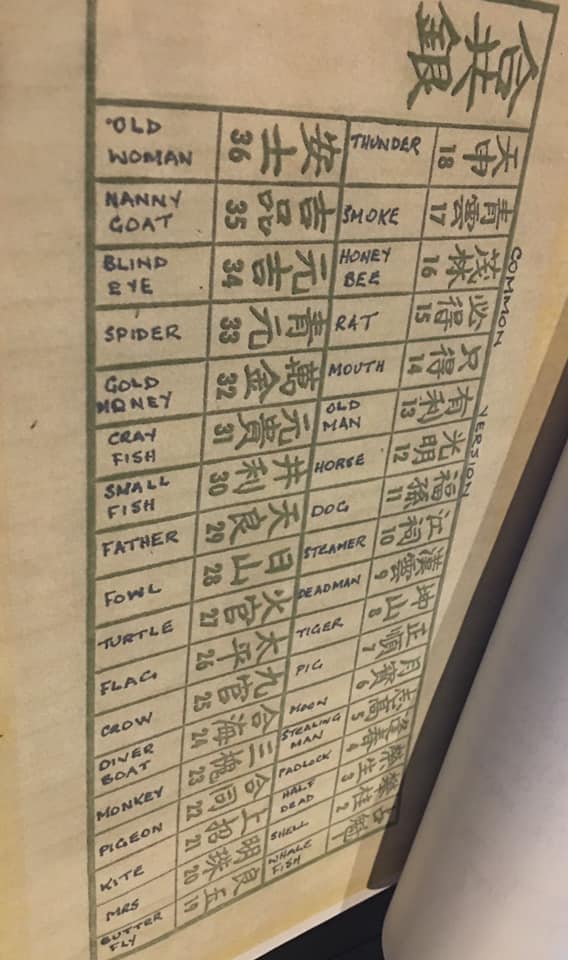 銀
COMMON VERSION
OLD
WOMAN
安士
36
THUNDER
天申
18
NANNY
GOAT
吉品
35
SMOKE
青雲
17
BLIND
EYE
元吉
34
HONEY
BEE
茂林
16
SPIDER
青元
33
RAT
必得
15
GOLD
MONEY
萬金
32
MOUTH
只得
14
CRAY
FISH
元貴
31
OLD
MAN
有利
13
SMALL
FISH
井利
30
HORSE
光明
12
FATHER
天良
29
DOG
福孫
11
FOWL
日山
28
STEAMER
江祠
10
TURTLE
火官
27
DEADMAN
漢雲
9
FLAG
太平
26
TIGER
坤山
8
CROW
九官
25
PIG
正順
7
DIVER
BOAT
合海
24
MOON
月寶
6
MONKEY
三槐
23
STEALING
MAN
志高
5
PIGEON
合同
22
PADLOCK
逢春
4
KITE
上招
21
HALF
DEAD
榮生
3
MRS
明珠
20
SHELL
2
BUTTER
FLY
良玉
19
WHALE
FISH
1